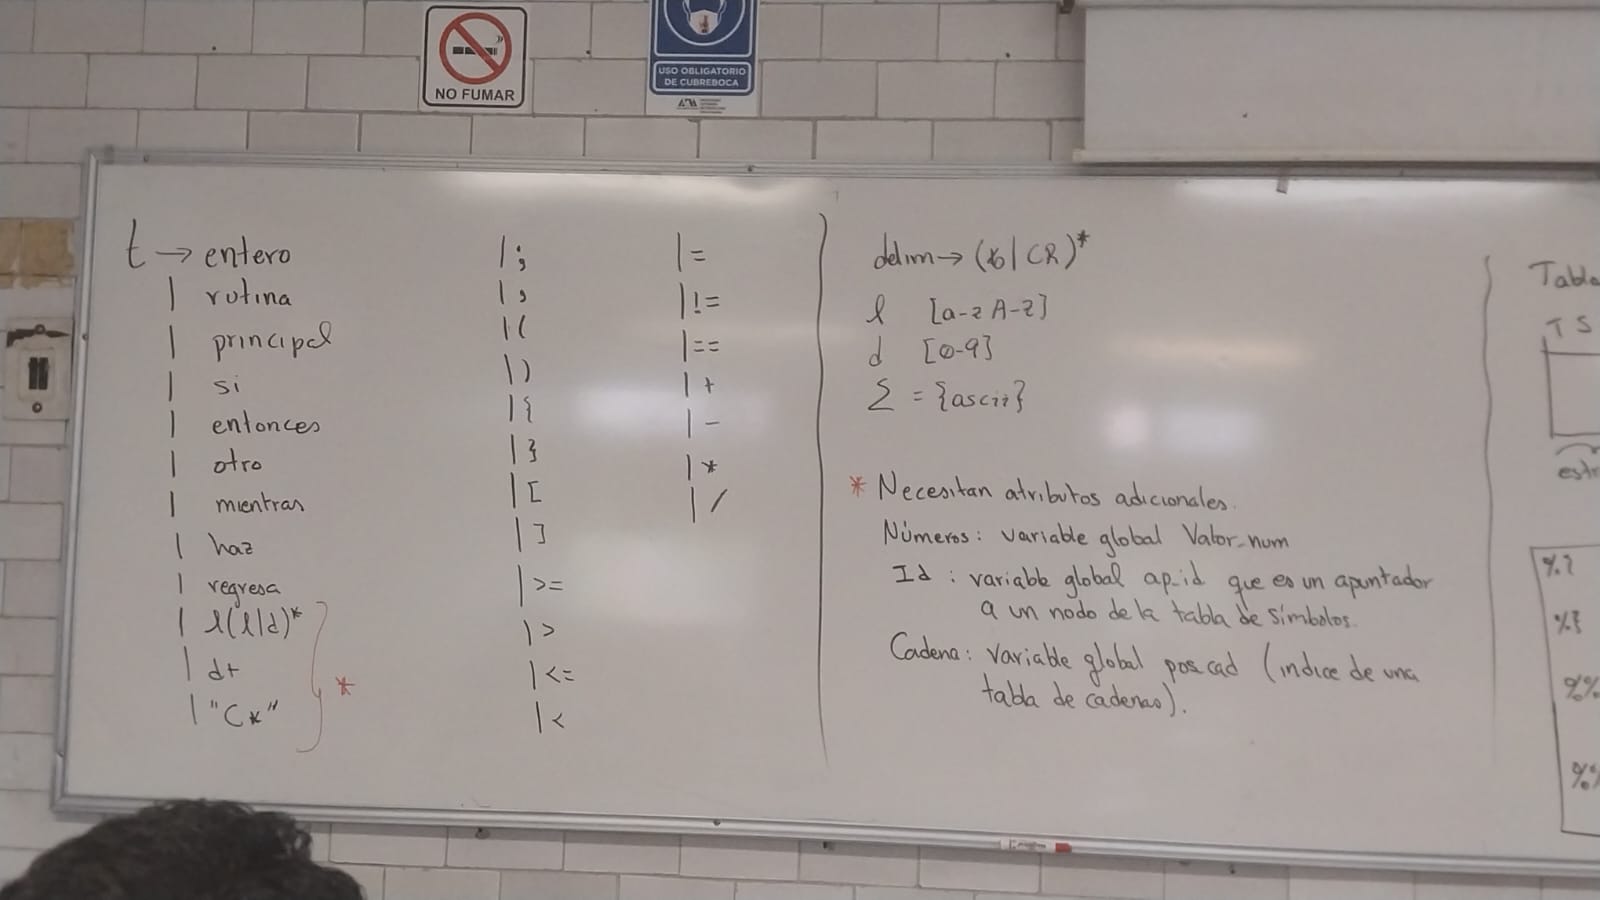 NO FUMAR
USO OBLIGATORIO
DE CUBREBOCA
t → entero
| rutina
| principal
| si
| entonces
| otro
| mientras
| haz
| regresa
| l(l|d)*
| d+
| "C*"
*
| ;
| ,
| (
| )
| {
| }
| [
| ]
| >=
| >
| <=
| <
| =
| !=
| ==
| +
| -
| *
| /
delim → (b|CR)*
l [a-z A-Z]
d [0-9]
Σ = {ascii}
* Necesitan atributos adicionales.
Números: variable global Valor_num
Id: variable global ap_id que es un apuntador
a un nodo de la tabla de símbolos.
Cadena: Variable global poscad (indice de una
tabla de cadenas).
Tabla
T S
estr
%{
%}
%%
%%